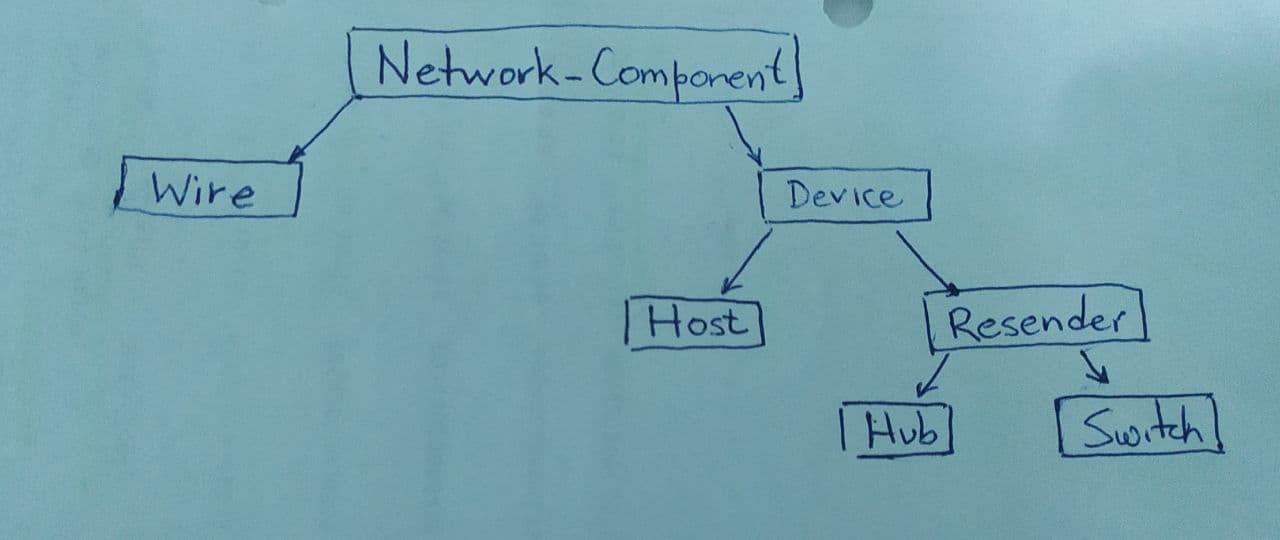 Network-Component
Wire
Device
Host
Resender
Hub
Switch